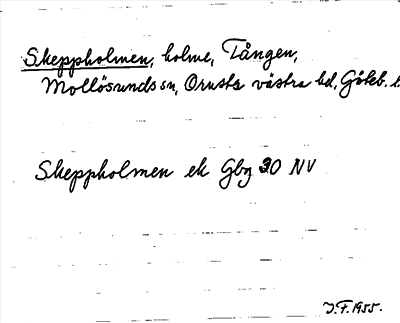 Skeppholmen, holme, Tången,
Mollösunds sn, Orusts västra hd, Göteb. l.
Skeppholmen ek Gbg 30 NV
J.F. 1955.